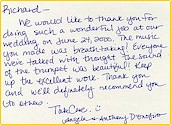 Richard—
We would like to thank you for
doing such a wonderful job at our
wedding on June 24, 2000. The music
you made was breathtaking! Everyone
we've talked with thought the sound
of the trumpet was beautiful! Keep
up the excellent work. Thank you
and we'll definitely recommend you
to others.
Take Care. :)
Angela & Anthony